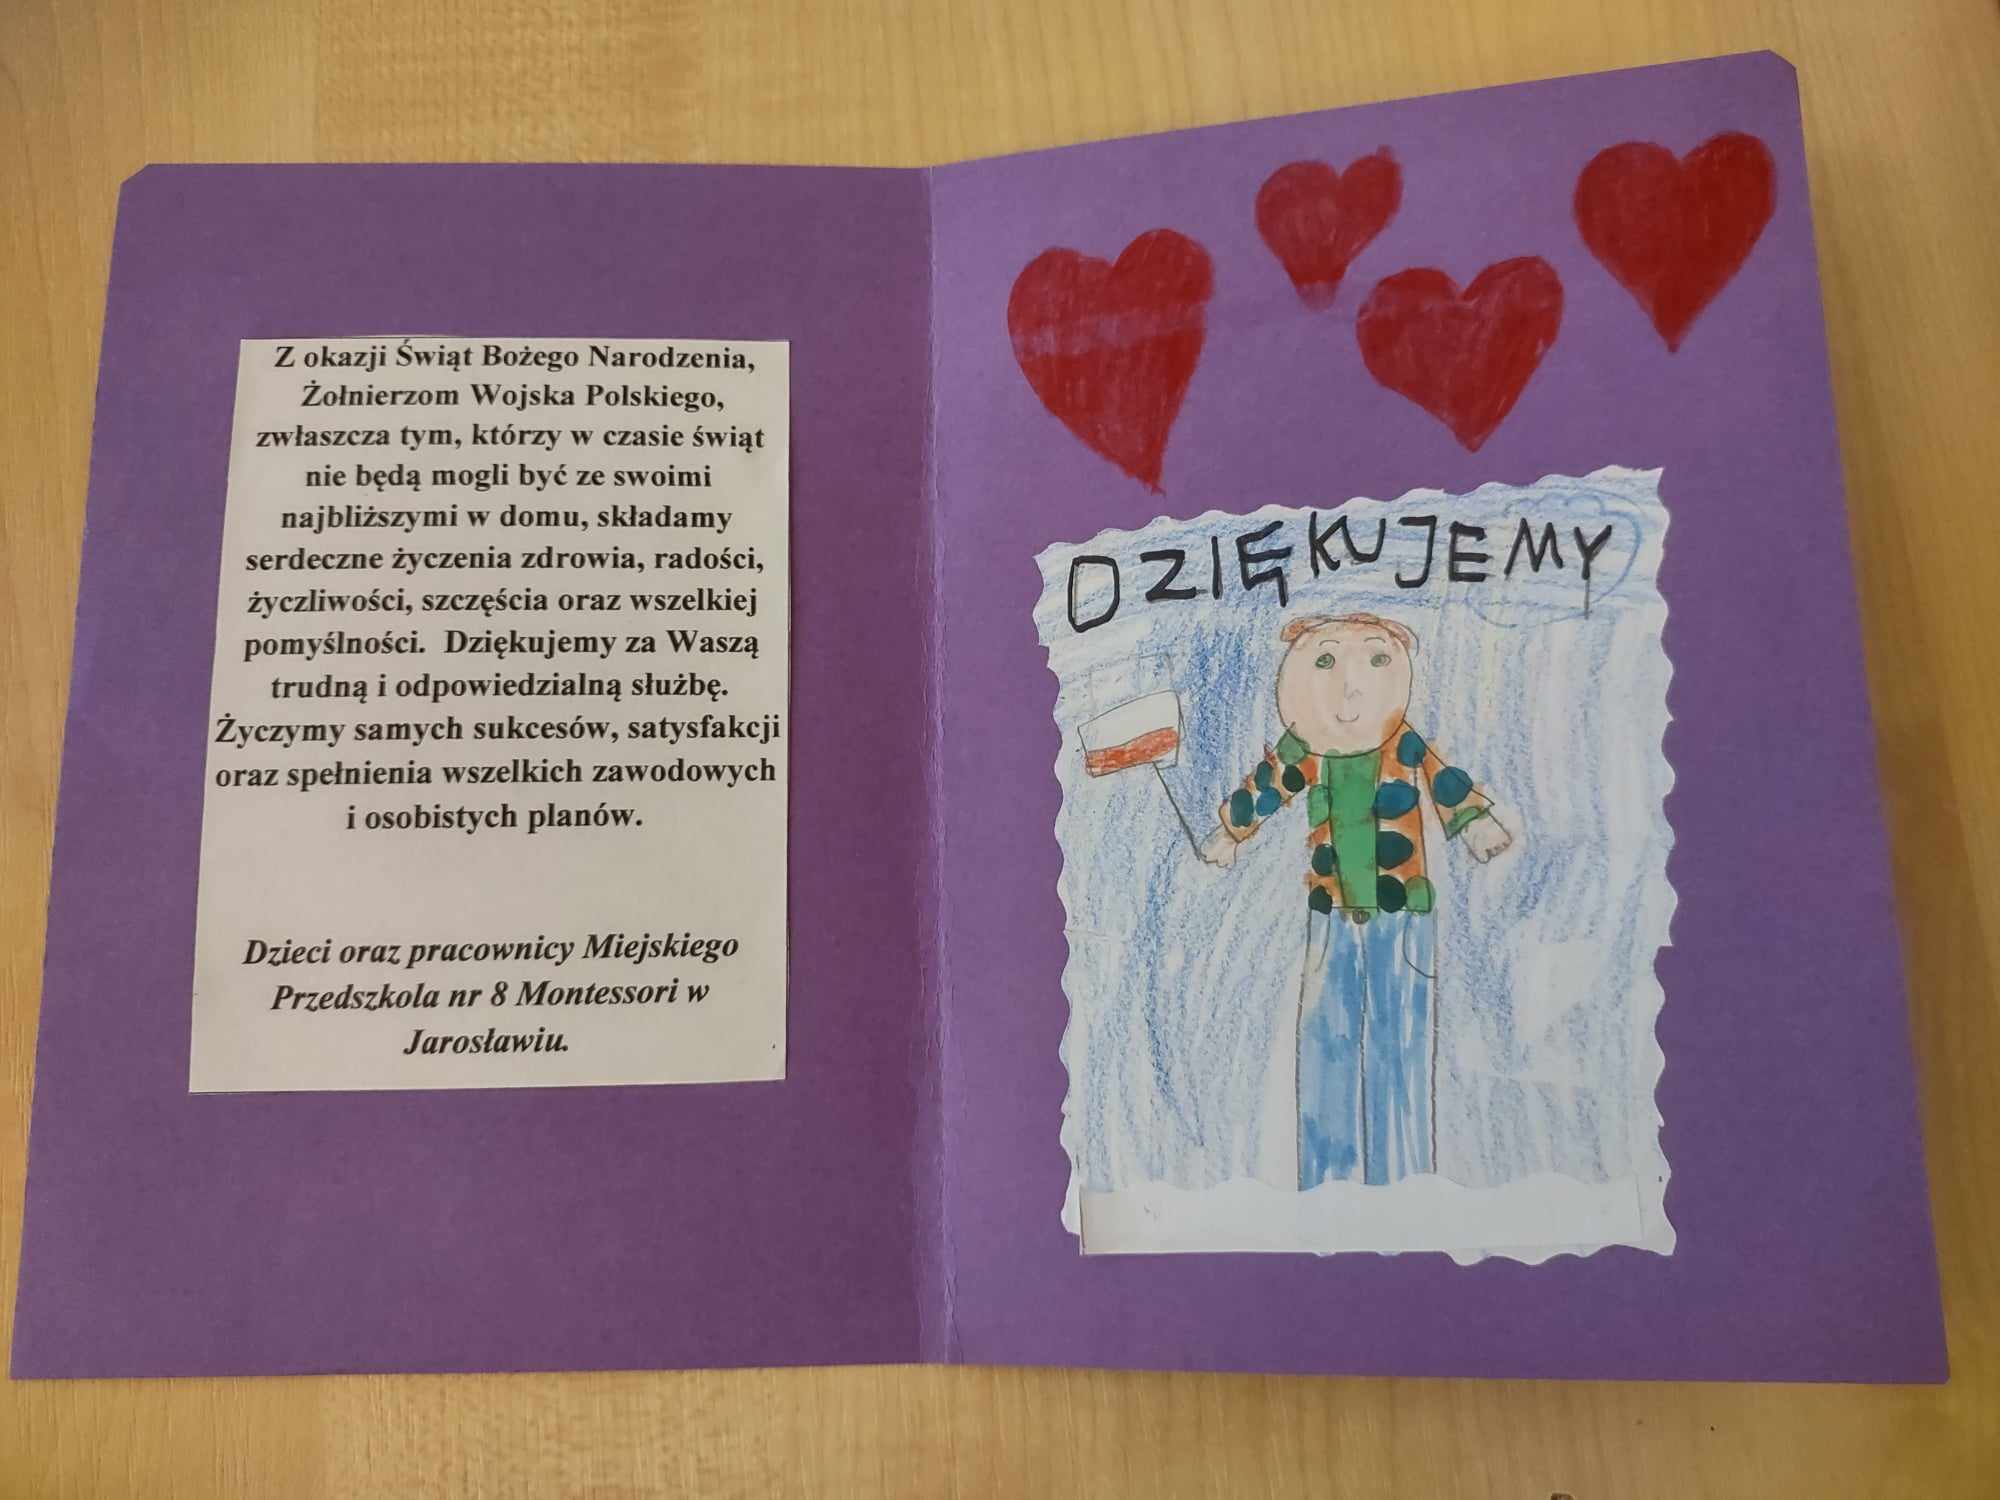 Z okazji Świąt Bożego Narodzenia,
Żołnierzom Wojska Polskiego,
zwłaszcza tym, którzy w czasie świąt
nie będą mogli być ze swoimi
najbliższymi w domu, składamy
serdeczne życzenia zdrowia, radości,
życzliwości, szczęścia oraz wszelkiej
pomyślności. Dziękujemy za Waszą
trudną i odpowiedzialną służbę.
Życzymy samych sukcesów, satysfakcji
oraz spełnienia wszelkich zawodowych
i osobistych planów.
Dzieci oraz pracownicy Miejskiego
Przedszkola nr 8 Montessori w
Jarosławiu.
DZIĘKUJEMY